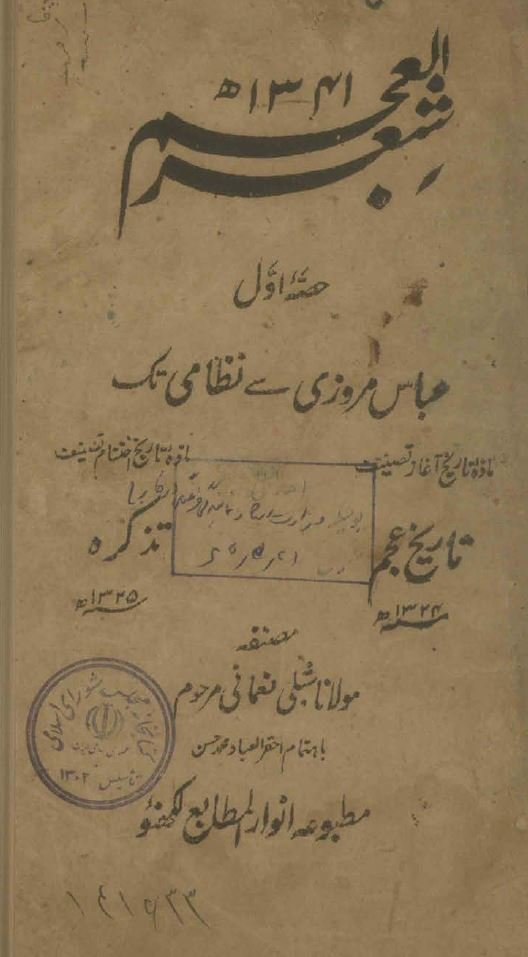 شعر العجم
۱۳۴۱ھ
حصّۂ اوّل
عباس مروزی سے نظامی تک
مادۂ تاریخ آغاز تصنیف
مادۂ تاریخ اختتام تصنیف
تاریخ عجم
تذکرہ
۱۳۲۴ھ
۱۳۲۵ھ
مصنفہ
مولانا شبلی نعمانی مرحوم
باہتمام احقر العباد محمد حسن
مطبوعہ انوار المطابع لکھنؤ
کتابخانه مجلس شورای اسلامی
تاسیس ۱۳۰۲